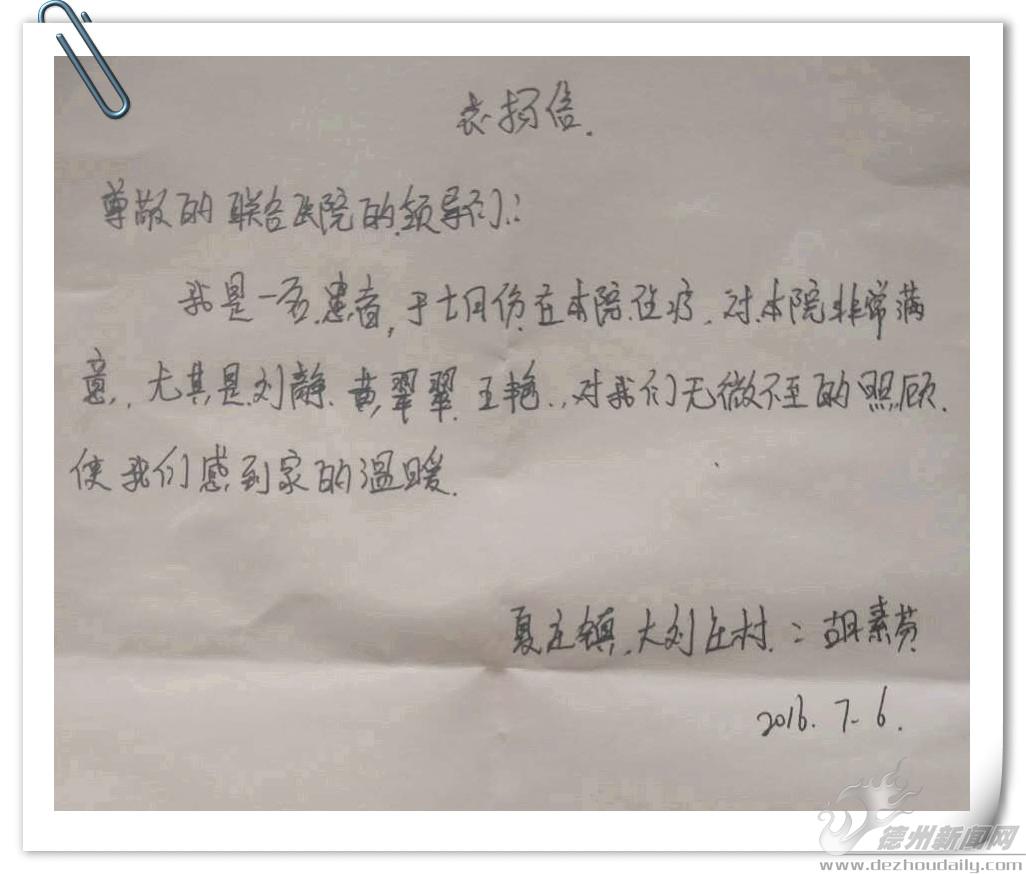 表扬信.
尊敬的联合医院的领导们:
我是一名患者,于七月份在本院住疗.对本院非常满
意,.尤其是刘静.黄翠翠.王艳.,对我们无微不至的照顾.
使我们感到家的温暖.
夏庄镇.大刘庄村:胡素芬
2016.7-6.
德州新闻网
www.dezhoudaily.com